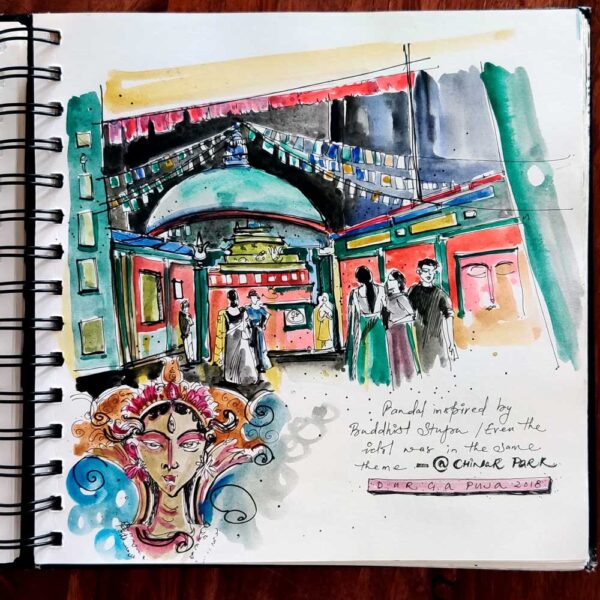 Pandal inspired by
Buddhist Stupa / Even the
idol was in the same
theme — @ CHINAR PARK
DURGA PUJA 2018